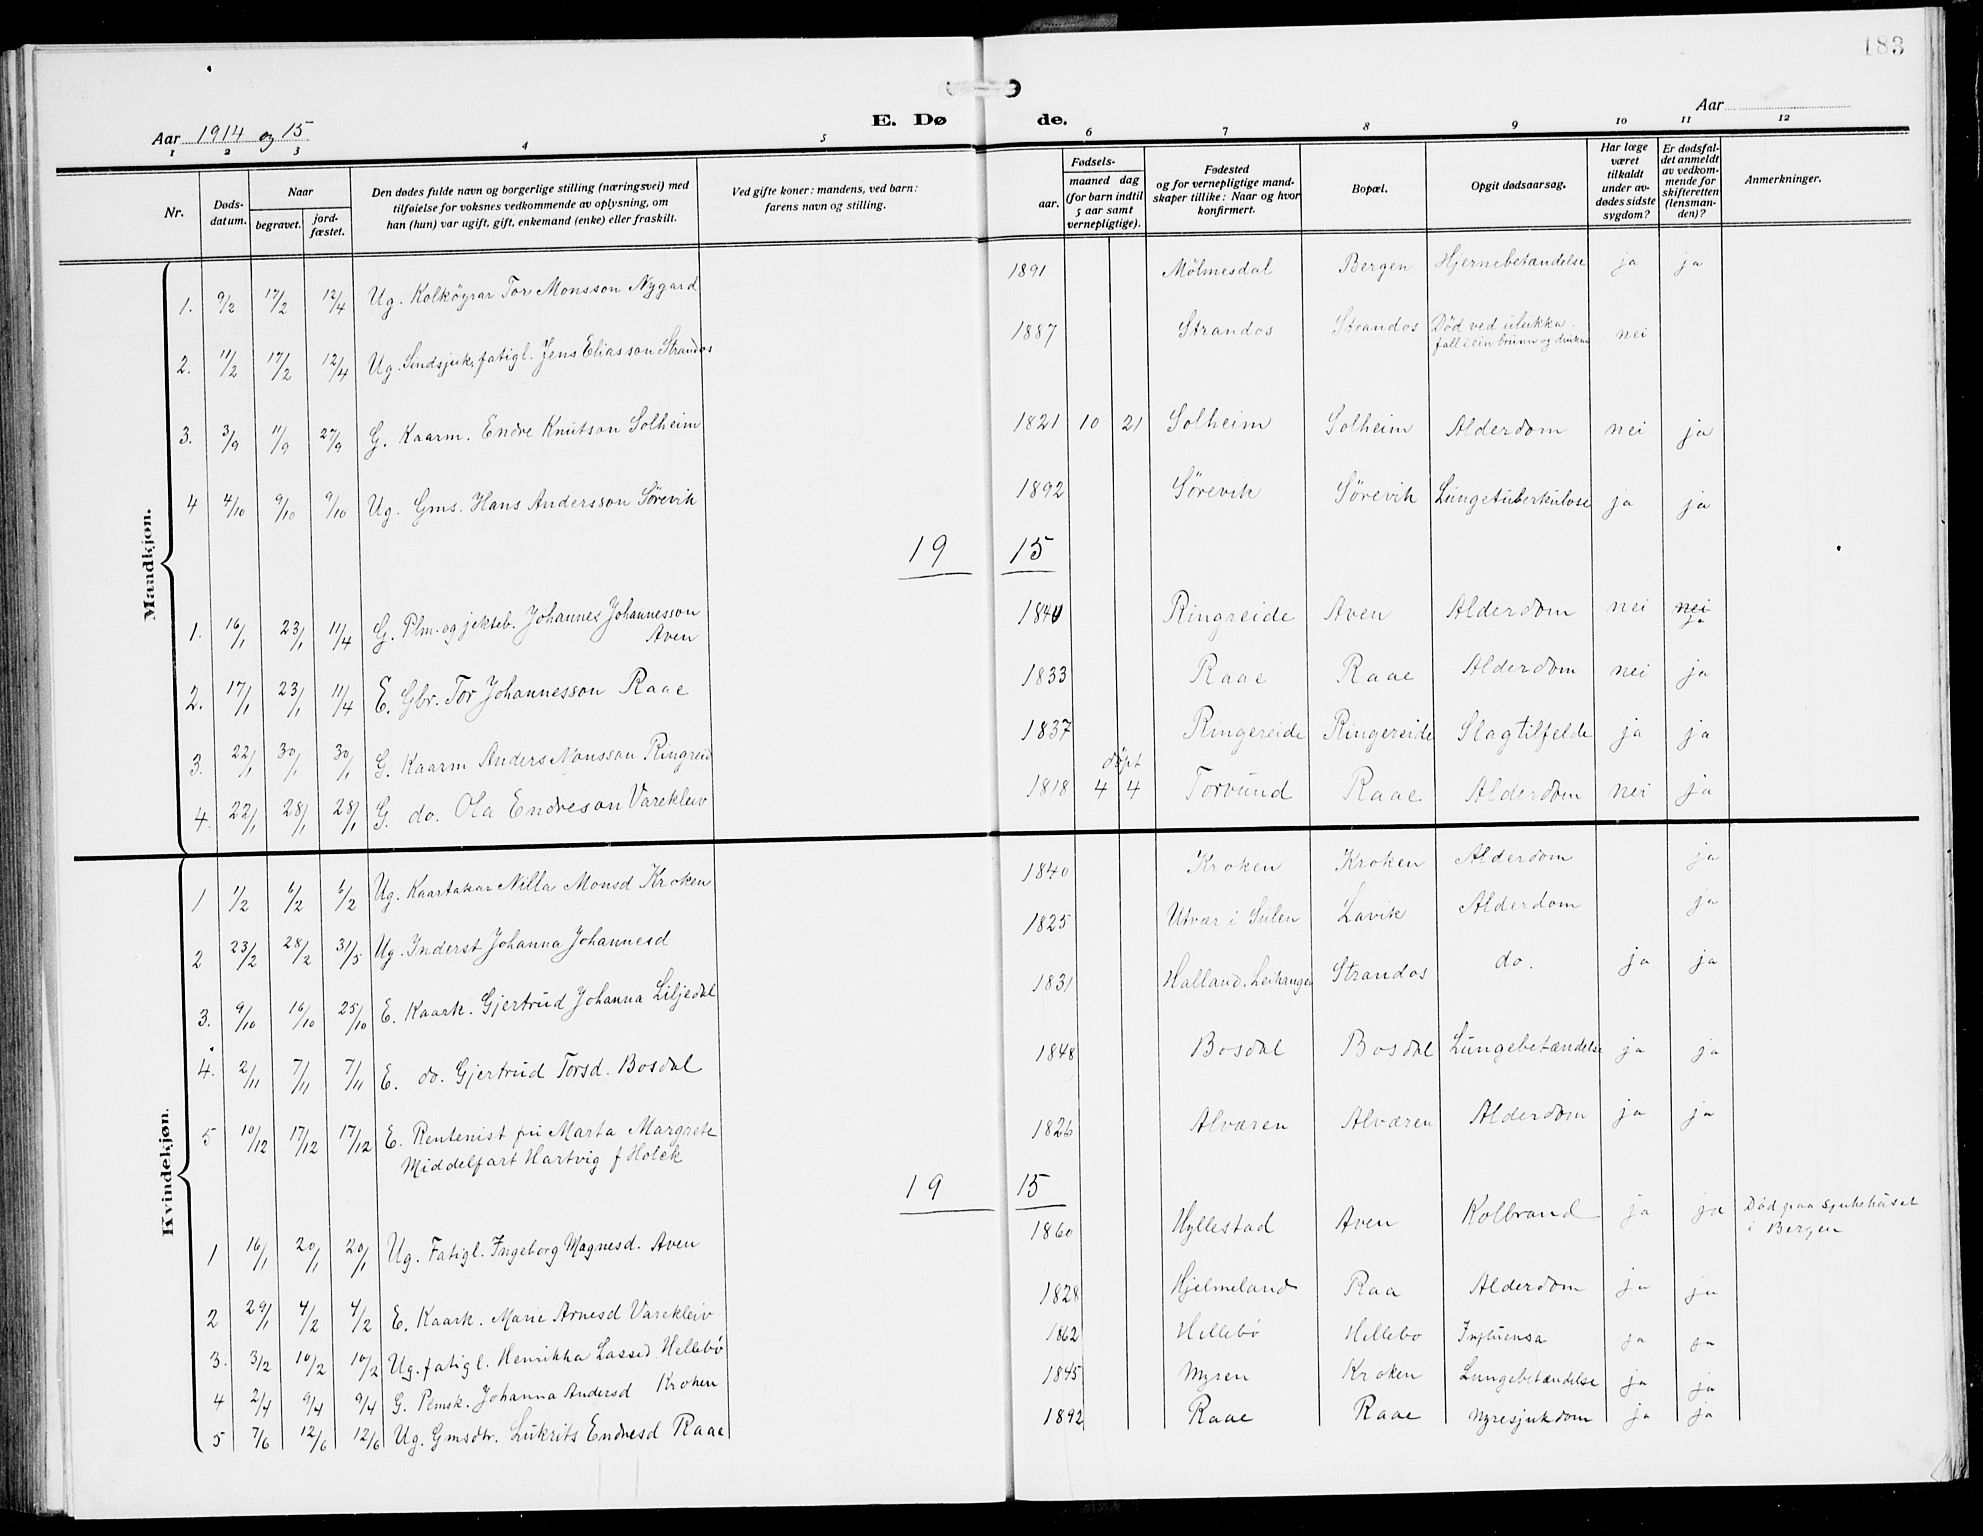 183
Aar 1914 og 15
E. Dø de.
Aar
1 2 3 4 5 6 7 8 9 10 11 12
Nr.
Døds-datum.
Naar
begravet.
jord-fæstet.
Den dødes fulde navn og borgerlige stilling (næringsvei) med
tilføielse for voksnes vedkommende av oplysning, om
han (hun) var ugift, gift, enkemand (enke) eller fraskilt.
Ved gifte koner: mandens, ved barn:
farens navn og stilling.
Fødsels-
aar.
maaned dag
(for barn indtil
5 aar samt
vernepligtige).
Fødested
og for vernepligtige mand-
skaper tillike: Naar og hvor
konfirmert.
Bopæl.
Opgit dødsaarsag.
Har læge
været
tilkaldt
under av-
dødes sidste
sygdom?
Er dødsfal-
det anmeldt
av vedkom-
mende for
skifteretten
(lensman-
den)?
Anmerkninger.
Mandkjøn.
1. 9/2 17/2 12/4 Ug. Kolköyrar Tor Monsson Nygard 1891 Mölmesdal Bergen Hjernebetændelse ja ja
2. 11/2 17/2 12/4 Ug. Sindsjuk, fatigl. Jens Eliasson Strandos 1887 Strandos Strandos Död ved ulukka. nei
fall i ein brunn og
3. 3/9 11/9 27/9 G. Kaarm. Endre Knutson Solheim 1821 10 21 Solheim Solheim Alderdom nei ja
4 4/10 9/10 9/10 Ug. Gms. Hans Andersson Sörevik 1892 Sörevik Sörevik Lungetuberkulose ja ja
19 15
1. 16/1 23/1 11/4 G. Plm. og jekteb. Johannes Johannesson 1840 Ringreide Aven Alderdom nei nei
Aven ja
2. 17/1 23/1 11/4 E. Gbr. Tor Johannesson Raae 1833 Raae Raae Alderdom nei ja
3. 22/1 30/1 30/1 G. Kaarm Anders Monsson Ringreid 1837 Ringereide Ringereide Slagtilfelde ja ja
döpt
4. 22/1 28/1 28/1 G. do. Ola Endreson Varekleiv 1818 4 4 Torvund Raae Alderdom nei ja
Kvindekjøn.
1 1/2 6/2 6/2 Ug. Kaartakar Nilla Monsd Kroken 1840 Kroken Kroken Alderdom ja
2 23/2 28/2 31/5 Ug. Inderst Johanna Johannesd 1825 Utvær i Sulen Lavik Alderdom ja
3. 9/10 16/10 25/10 E. Kaark. Gjertrud Johanna Liljedal 1831 Halland. Leikanger Strandos do. ja ja
4. 2/11 7/11 7/11 E. do. Gjertrud Torsd. Bosdal 1848 Bosdal Bosdal Lungebetændelse ja ja
5 10/12 17/12 17/12 E. Rentenist fru Marta Margrete 1826 Alværen Alværen Alderdom ja ja
Middelfart Hartvig f Holck
19 15
1 16/1 20/1 20/1 Ug. Fatigl. Ingeborg Magnesd. Aven 1860 Hyllestad Aven Kolbrand ja ja Död paa sjukehuset
i Bergen
2 29/1 4/2 4/2 E. Kaark. Marie Arnesd Varekleiv 1828 Hjelmeland Raa Alderdom ja ja
3. 3/2 10/2 10/2 Ug. fatigl. Henrikka Lassed Hellebö 1862 Hellebö Hellebo Influensa ja ja
4 2/4 9/4 9/4 G. Plmsk. Johanna Andersd Kroken 1845 Myren Kroken Lungebetændelse ja ja
5 7/6 12/6 12/6 Ug. Gmsdtr. Lukrits Endresd Raae 1892 Raae Raae Nyresjukdom ja ja